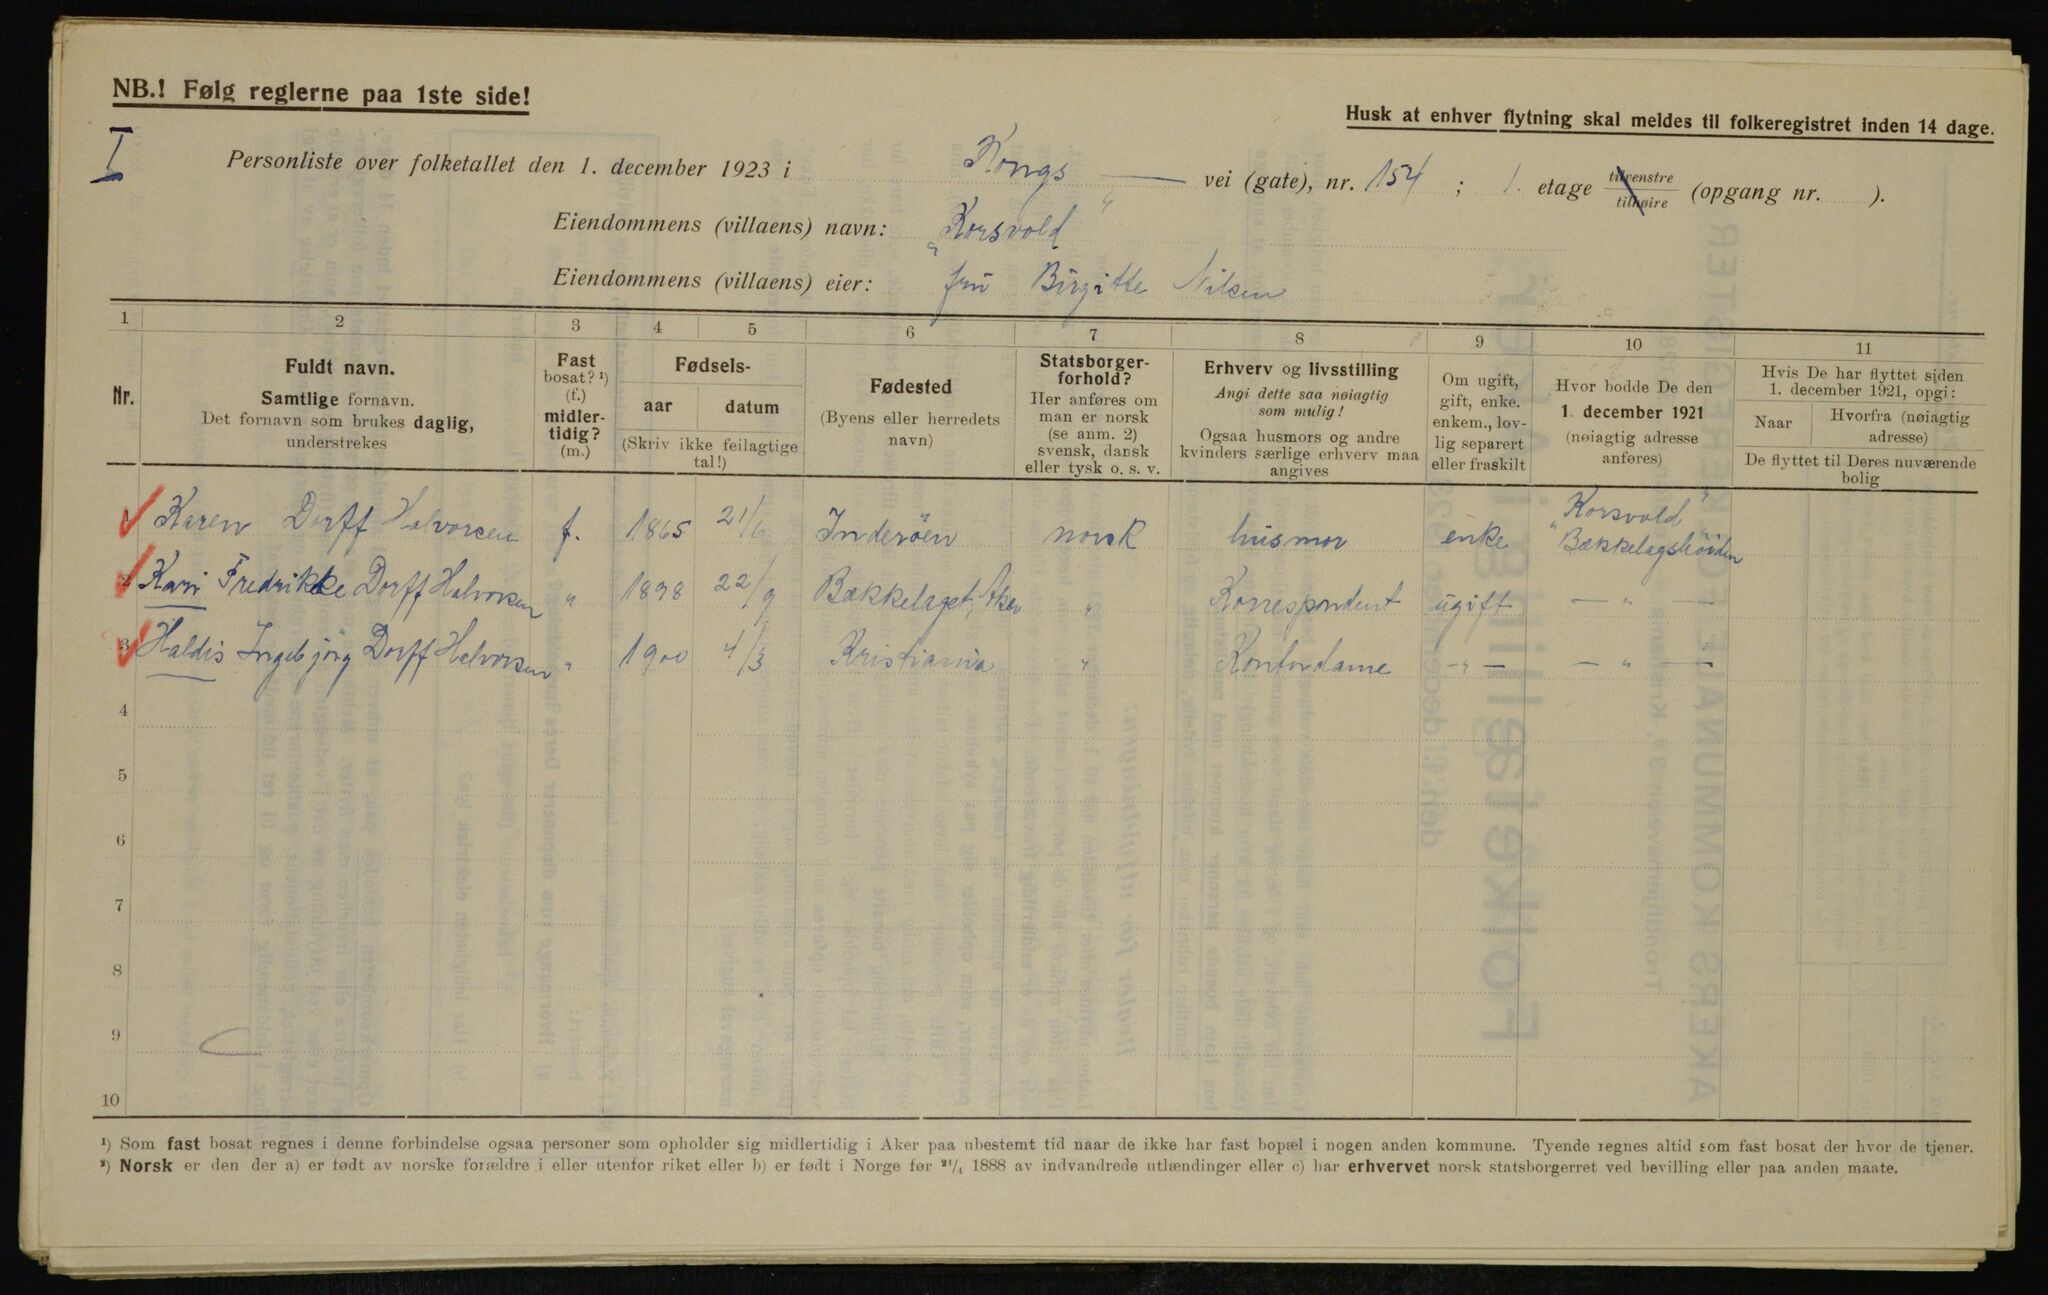 NB.! Følg reglerne paa 1ste side!
Husk at enhver flytning skal meldes til folkeregistret inden 14 dage.
I
Personliste over folketallet den 1. december 1923 i Kongs — vei (gate), nr. 154 ; 1. etage tilvenstre tilhøire (opgang nr. ).
Eiendommens (villaens) navn: "Korsvold"
Eiendommens (villaens) eier: fru Birgitte Nilsen
1 2 3 4 5 6 7 8 9 10 11
Nr.
Fuldt navn.
Samtlige fornavn.
Det fornavn som brukes daglig,
understrekes
Fast
bosat? ¹)
(f.)
midler-
tidig?
(m.)
Fødsels-
aar datum
(Skriv ikke feilagtige
tal!)
Fødested
(Byens eller herredets
navn)
Statsborger-
forhold?
Her anføres om
man er norsk
(se anm. 2)
svensk, dansk
eller tysk o. s. v.
Erhverv og livsstilling
Angi dette saa nøiagtig
som mulig!
Ogsaa husmors og andre
kvinders særlige erhverv maa
angives
Om ugift,
gift, enke.
enkem., lov-
lig separert
eller fraskilt
Hvor bodde De den
1. december 1921
(nøiagtig adresse
anføres)
Hvis De har flyttet siden
1. december 1921, opgi:
Naar
Hvorfra (nøiagtig
adresse)
De flyttet til Deres nuværende
bolig
1 Karen Dorff Halvorsen f. 1865 21/6 Inderöen norsk husmor enke "Korsvold" Bækkelagshöiden
2 Kari Fredrikke Dorff Halvorsen " 1898 22/9 Bækkelaget, Aker " Korrespondent ugift — " —
3 Haldis Ingebjörg Dorff Halvorsen " 1900 4/3 Kristiania " Kontordame — " — — " —
4
5
6
7
8
9
10
¹) Som fast bosat regnes i denne forbindelse ogsaa personer som opholder sig midlertidig i Aker paa ubestemt tid naar de ikke har fast bopæl i nogen anden kommune. Tyende regnes altid som fast bosat der hvor de tjener.
²) Norsk er den der a) er født av norske forældre i eller utenfor riket eller b) er født i Norge før ²¹/₄ 1888 av indvandrede utlændinger eller c) har erhvervet norsk statsborgerret ved bevilling eller paa anden maate.